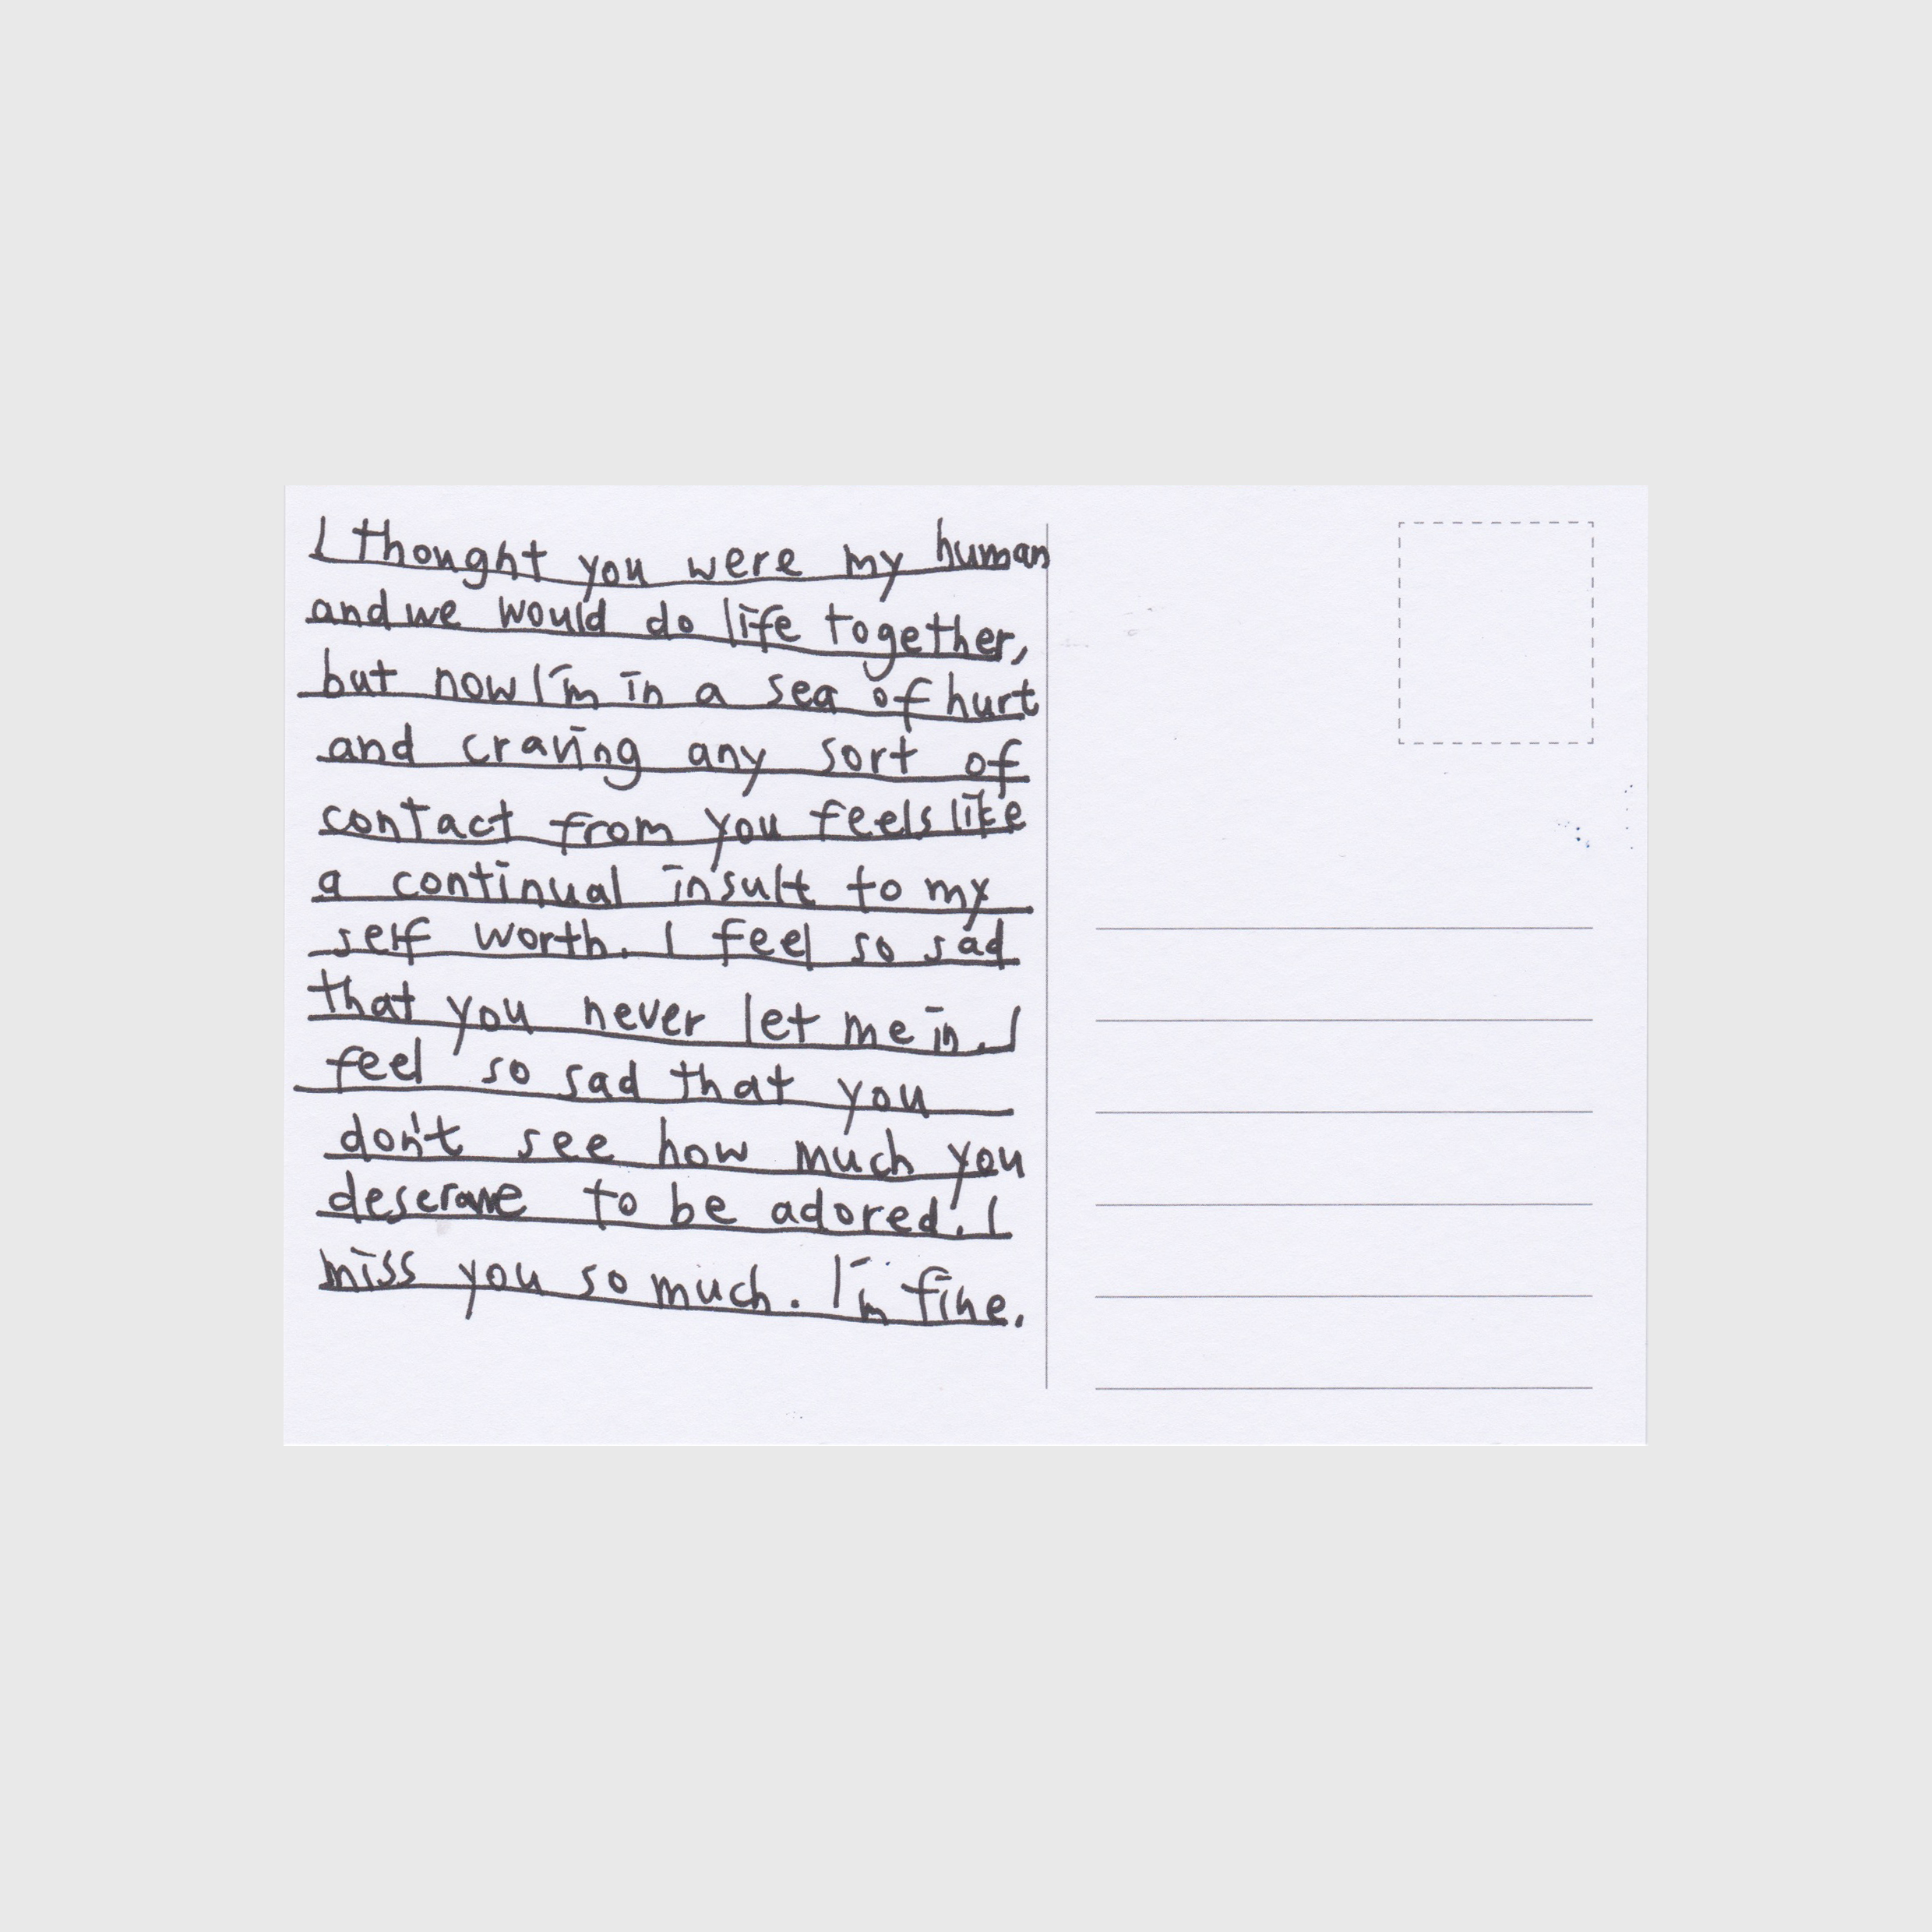 I thought you were my human
and we would do life together,
but now I'm in a sea of hurt
and craving any sort of
contact from you feels like
a continual insult to my
self worth. I feel so sad
that you never let me in. I
feel so sad that you
don't see how much you
to be adored. I
miss you so much. I'm fine.